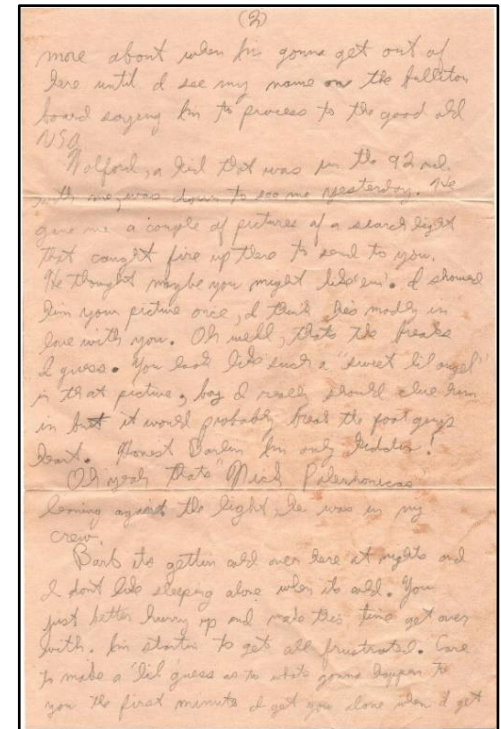 (2)
more about when I'm gonna get out of
here until I see my name on the bulliton
board saying I'm to process to the good old
USA
Walford, a kid that was in the 92nd
with me, was down to see me yesterday. He
gave me a couple of pictures of a search light
that caught fire up there to send to you.
He thought maybe you might like 'em. I showed
him your picture once, I think he's madly in
love with you. Oh well, thats the breaks
I guess. You look like such a "sweet lil angel"
in that picture, boy I really should clue him
in but it would probably break the poor guys
heart. Honest Darlin I'm only kiddin!
Oh yeah thats "Nick
leaning against the light, he was in my
crew.
Barb its gettin cold over here at nights and
I dont like sleeping alone when its cold. You
just better hurry up and make this time get over
with. I'm startin to get all frustrated. Care
to make a lil guess as to whats gonna happen to
you the first minute I get you alone when I get